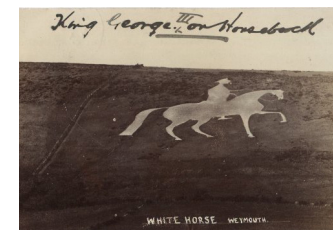 King George III on Horseback
WHITE HORSE WEYMOUTH.